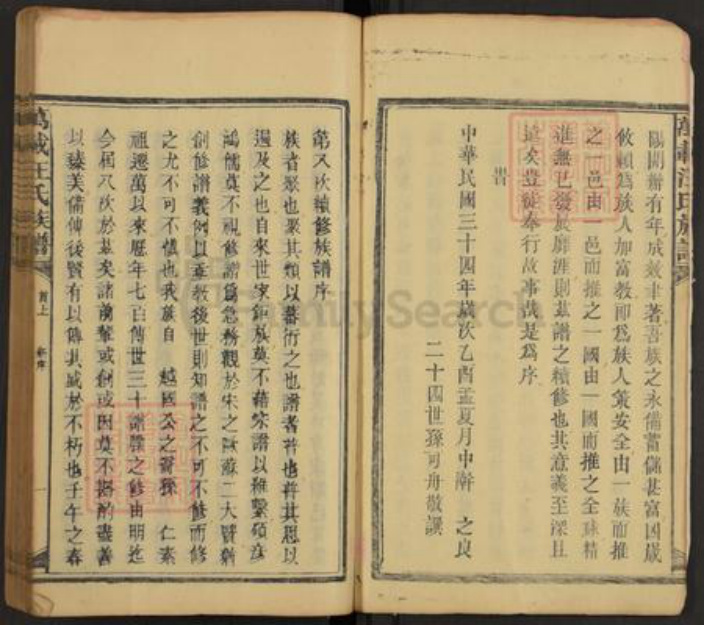 陽開辦有年成效聿著吾族之永備蓄儲甚富因歲
攸賴爲族人加富教卽爲族人策安全由一族而推
之一邑由一邑而推之一國由一國而推之全球精
進無已發展靡涯則茲譜之續修也其意義至深且
遠矣豈徒奉行故事哉是爲序
旹
中華民國三十四年歲次乙酉孟夏月中澣 之良
二十四世孫可舟敬譔
萬載汪氏族譜
第八次續修族譜序
族者聚也聚其類以蕃衍之也譜者普也普其思以
遍及之也自來世家鉅族莫不藉宗譜以維繫碩彥
鴻儒莫不視修譜爲急務觀於宋之歐蘇二大賢
創修譜義例以垂教後世則知譜之不可不修而修
之尤不可不愼也我族自 越國公之裔孫 仁素
祖遷萬以來歷年七百傳世三十譜牒之修由明迄
今屆八次於茲矣諸前輩或創或因莫不斟酌盡善
以臻美備俾後賢有以傳其盛於不朽也壬午之春
萬載汪氏族譜
首上
新序
一
FamilySearch